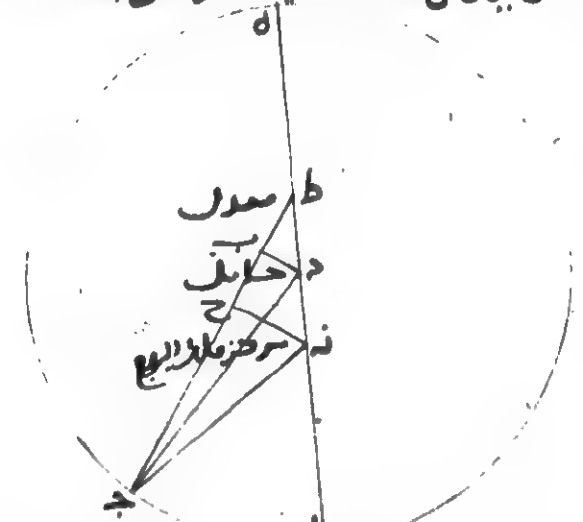 ه
ط معدل
ب
د حامل
ح
ن مركز فلك البروج
ج
ا